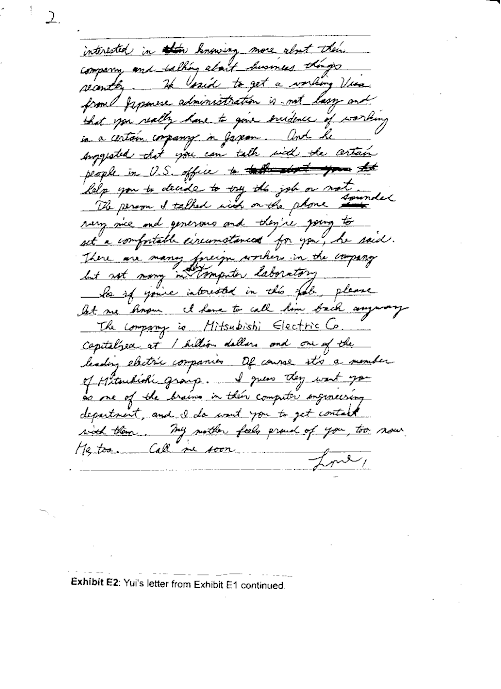 2
interested in knowing more about their
company and talking about business things
recently. He said to get a working Visa
from Japanese administration is not easy and
that you really have to give evidence of working
in a certain company in Japan. And he
suggested that you can talk with the certain
people in U.S. office to
help you to decide to try this job or not.
The person I talked with on the phone sounded
very nice and generous and they're going to
set a comfortable circumstances for you, he said.
There are many foreign workers in the company
but not many in computer laboratory
So if you're interested in this job please
let me know. I have to call him back anyway
The company is Mitsubishi Electric Co
capitalized at 1 billion dollars and one of the
leading electric companies Of course it's a member
of Mitsubishi group. I guess they want you
as one of the brains in their computer engineering
department, and I do want you to get contact
with them. My mother feels proud of you, too now
Me, too. Call me soon
Love,
Exhibit E2: Yui's letter from Exhibit E1 continued.